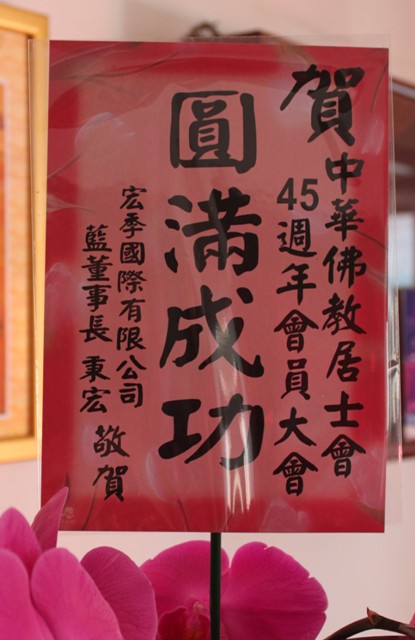 賀中華佛教居士會
45週年會員大會
圓滿成功
宏季國際有限公司
藍董事長 秉宏 敬賀